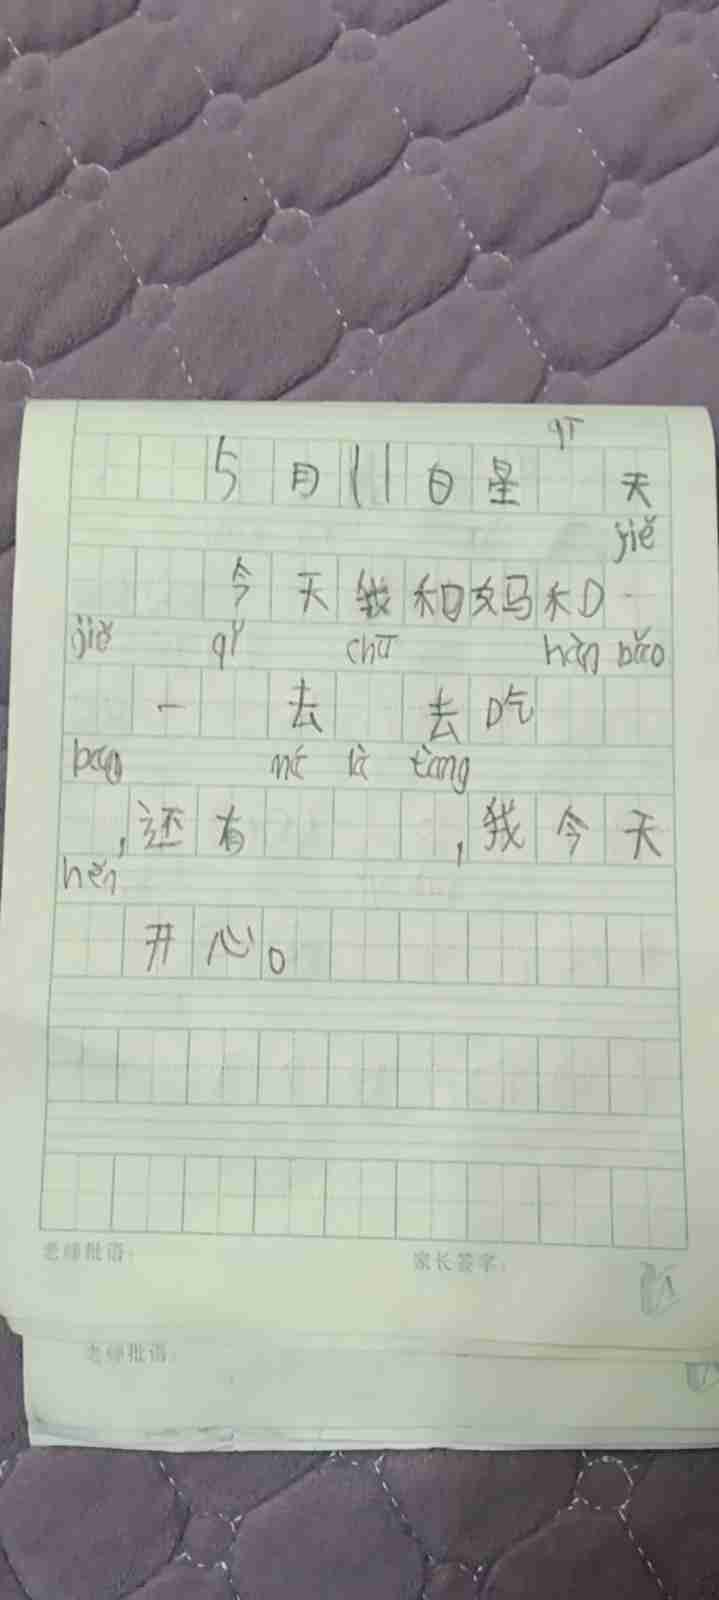 qī
5月11日星 天
jiě
今天我和妈和
jiě qǐ chū hàn bǎo
一 去 去吃
bao má là tàng
，还有 ，我今天
hěn
开心。
老师批语：
家长签字：
老师批语：